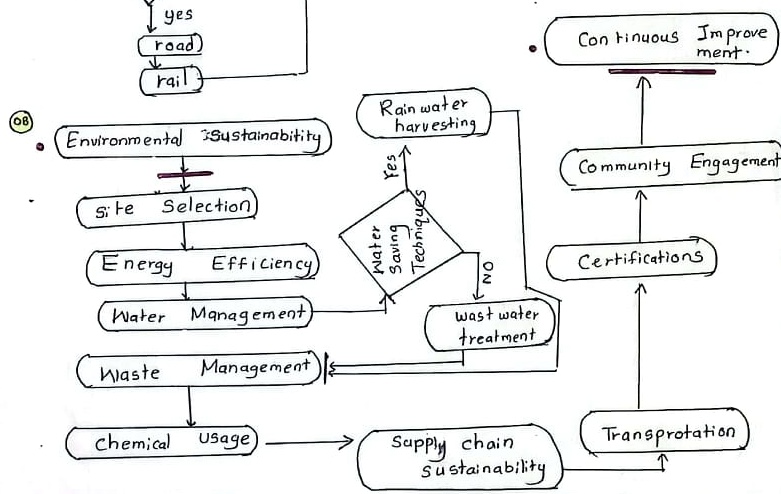 yes
road
rail
08
Environmental Sustainability
Site Selection
Energy Efficiency
Water Management
Water
Saving
Techniques
Yes
Rain water
harvesting
NO
wast water
treatment
Waste Management
Chemical Usage
Supply chain
sustainability
Transprotation
Certifications
Community Engagement
Continuous Improve
ment.